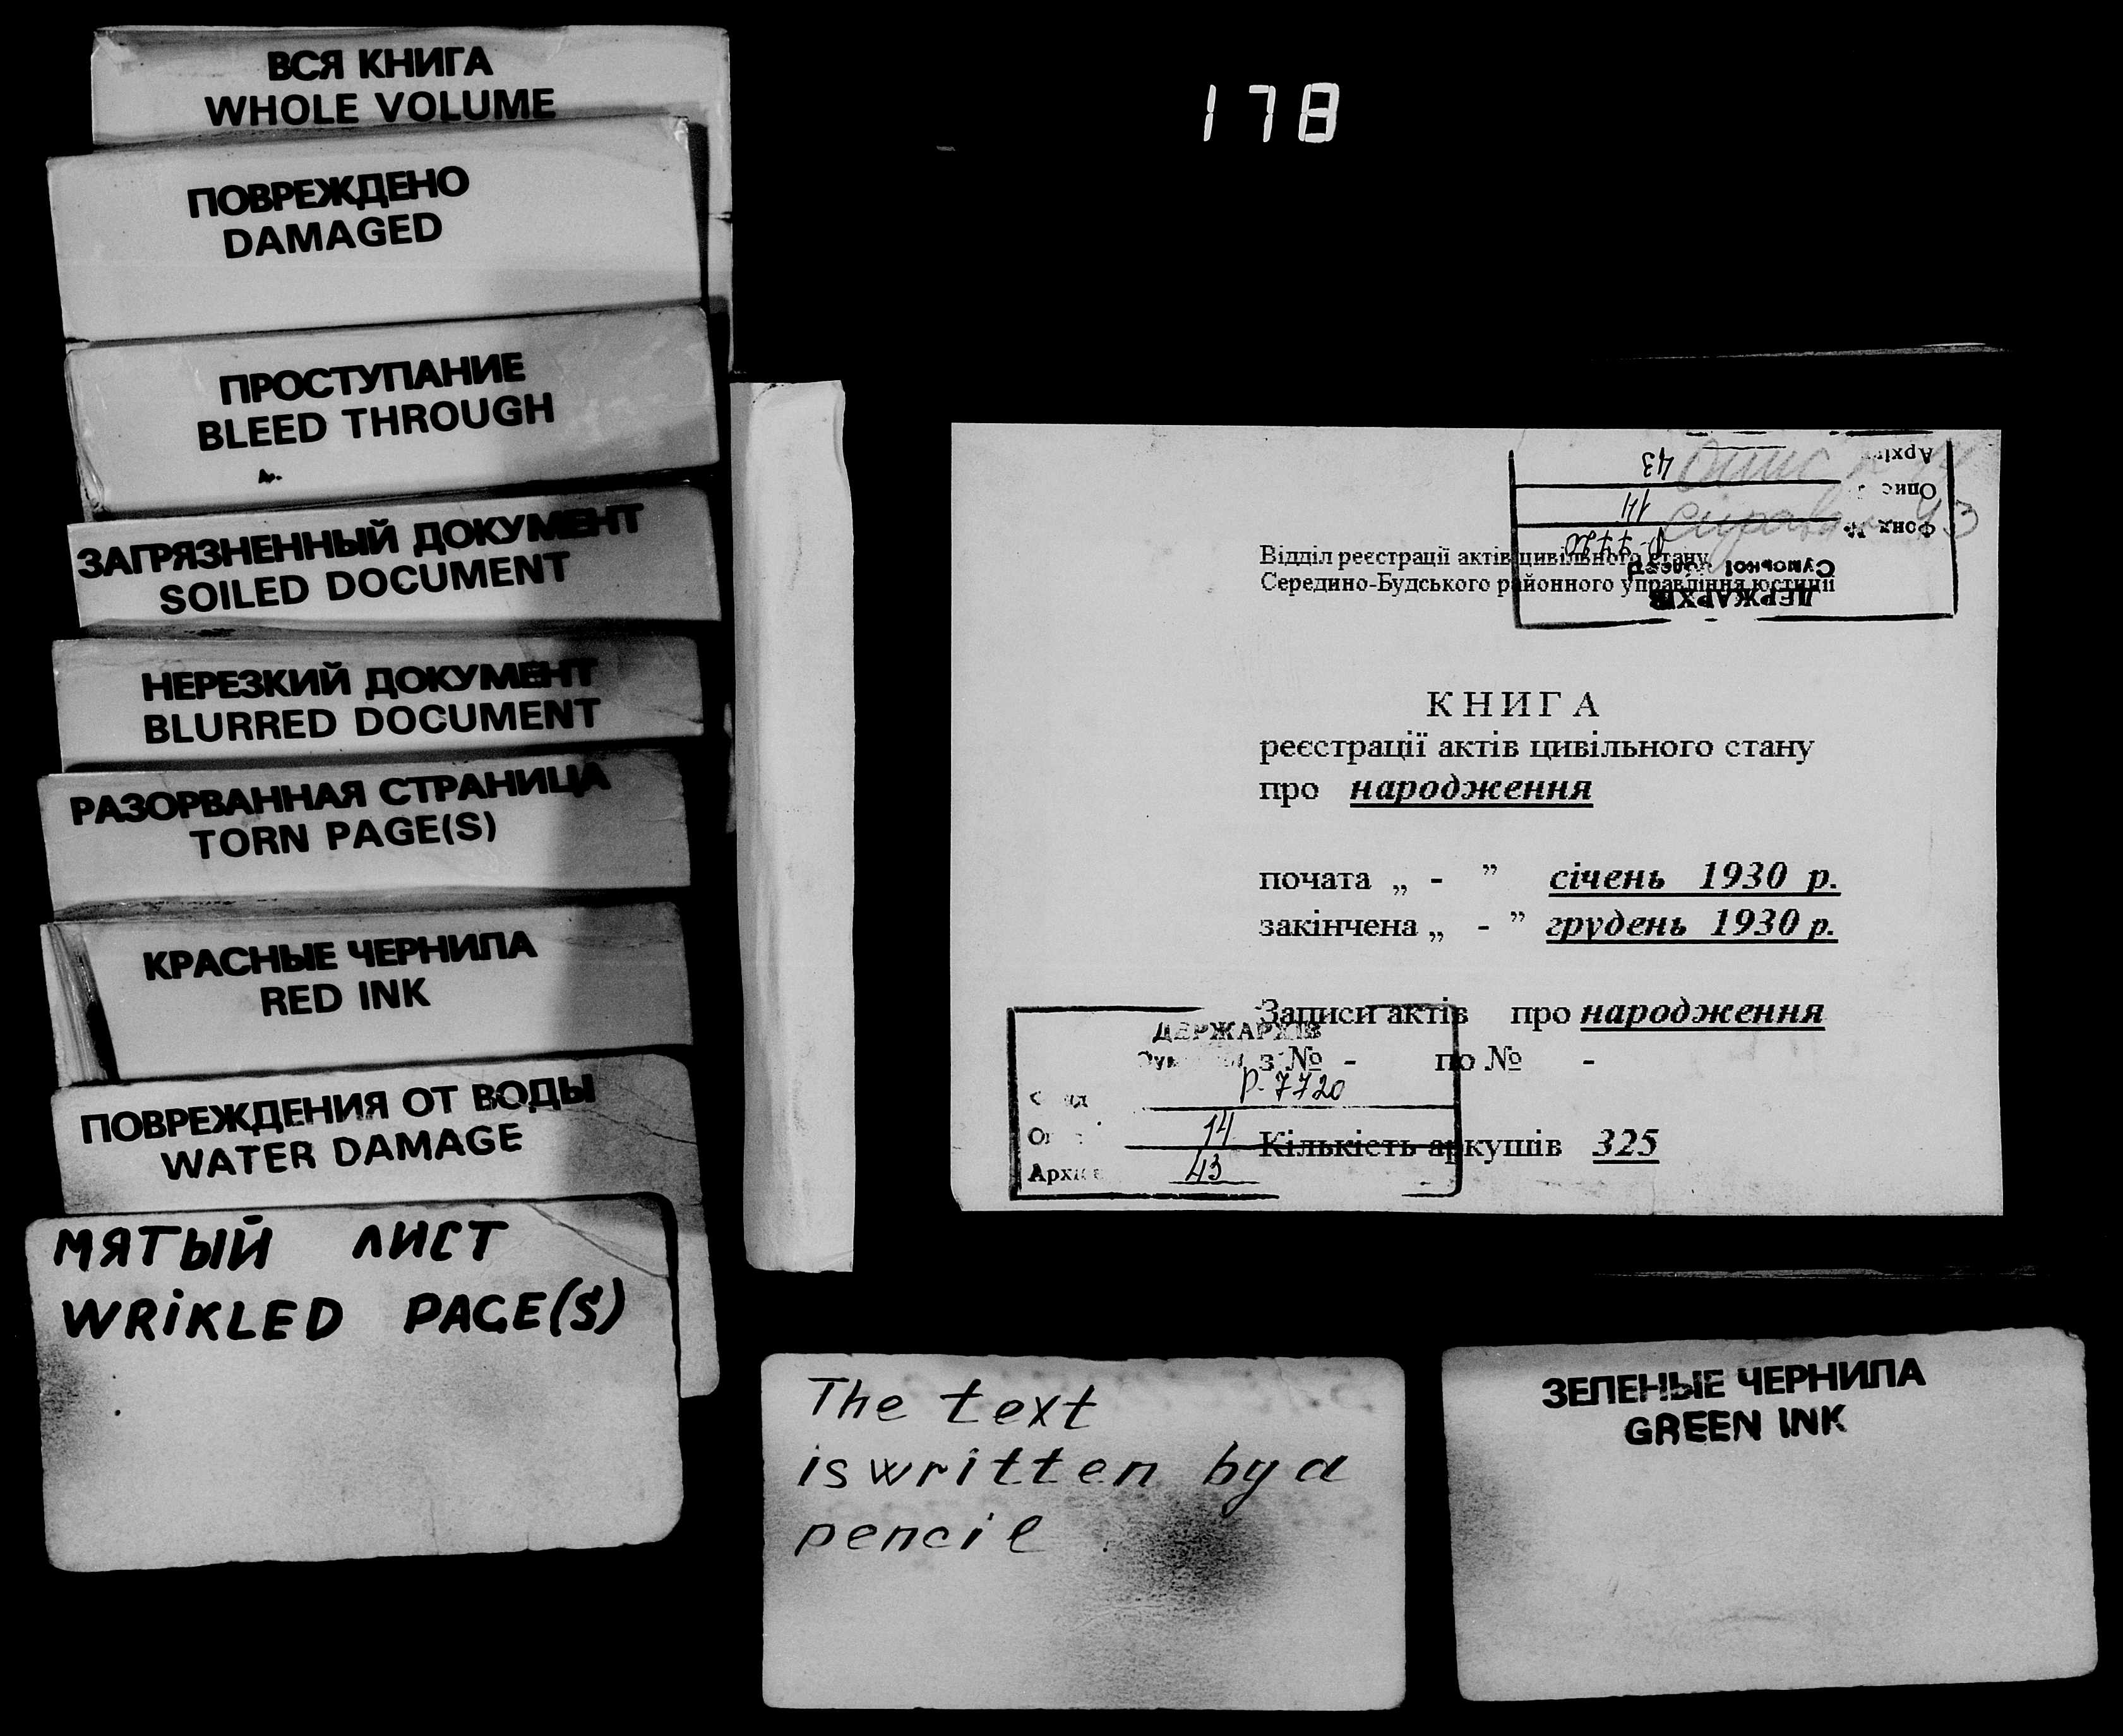 ВСЯ КНИГА
WHOLE VOLUME
ПОВРЕЖДЕНО
DAMAGED
ПРОСТУПАНИЕ
BLEED THROUGH
ЗАГРЯЗНЕННЫЙ ДОКУМЕНТ
SOILED DOCUMENT
НЕРЕЗКИЙ ДОКУМЕНТ
BLURRED DOCUMENT
РАЗОРВАННАЯ СТРАНИЦА
TORN PAGE(S)
КРАСНЫЕ ЧЕРНИЛА
RED INK
ПОВРЕЖДЕНИЯ ОТ ВОДЫ
WATER DAMAGE
МЯТЫЙ ЛИСТ
WRIKLED PAGE(S)
178
ДЕРЖАРХІВ
Сумської
Фонд № Р-7720
Опис 14
43
Опис
Справа 43
Відділ реєстрації актів цивільного стану
Середино-Будського районного управління юстиції
КНИГА
реєстрації актів цивільного стану
про народження
почата „ - ” січень 1930 р.
закінчена „ - ” грудень 1930 р.
Записи актів про народження
з № - по № -
Кількість аркушів 325
ДЕРЖАРХІВ
Р-7720
14
43
The text
is written by a
pencil
ЗЕЛЕНЫЕ ЧЕРНИЛА
GREEN INK